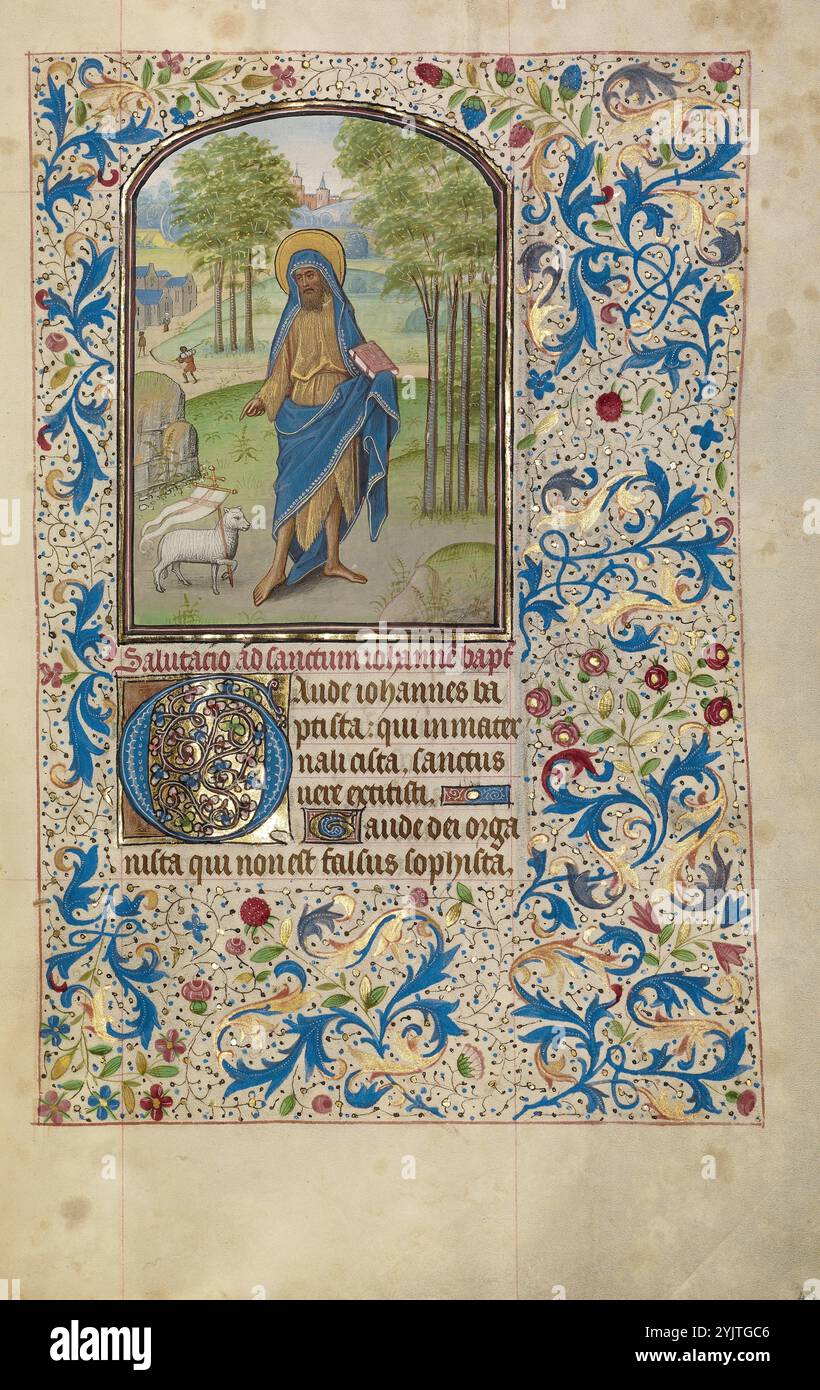 Salutacio ad sanctum iohannē bapt
GAude iohannes ba
ptista: qui in mater
nali cista, sanctus
uere extitisti.
Gaude dei orga
nista qui non est falsus sophista,
alamy
Image ID: 2YJTGC6
www.alamy.com